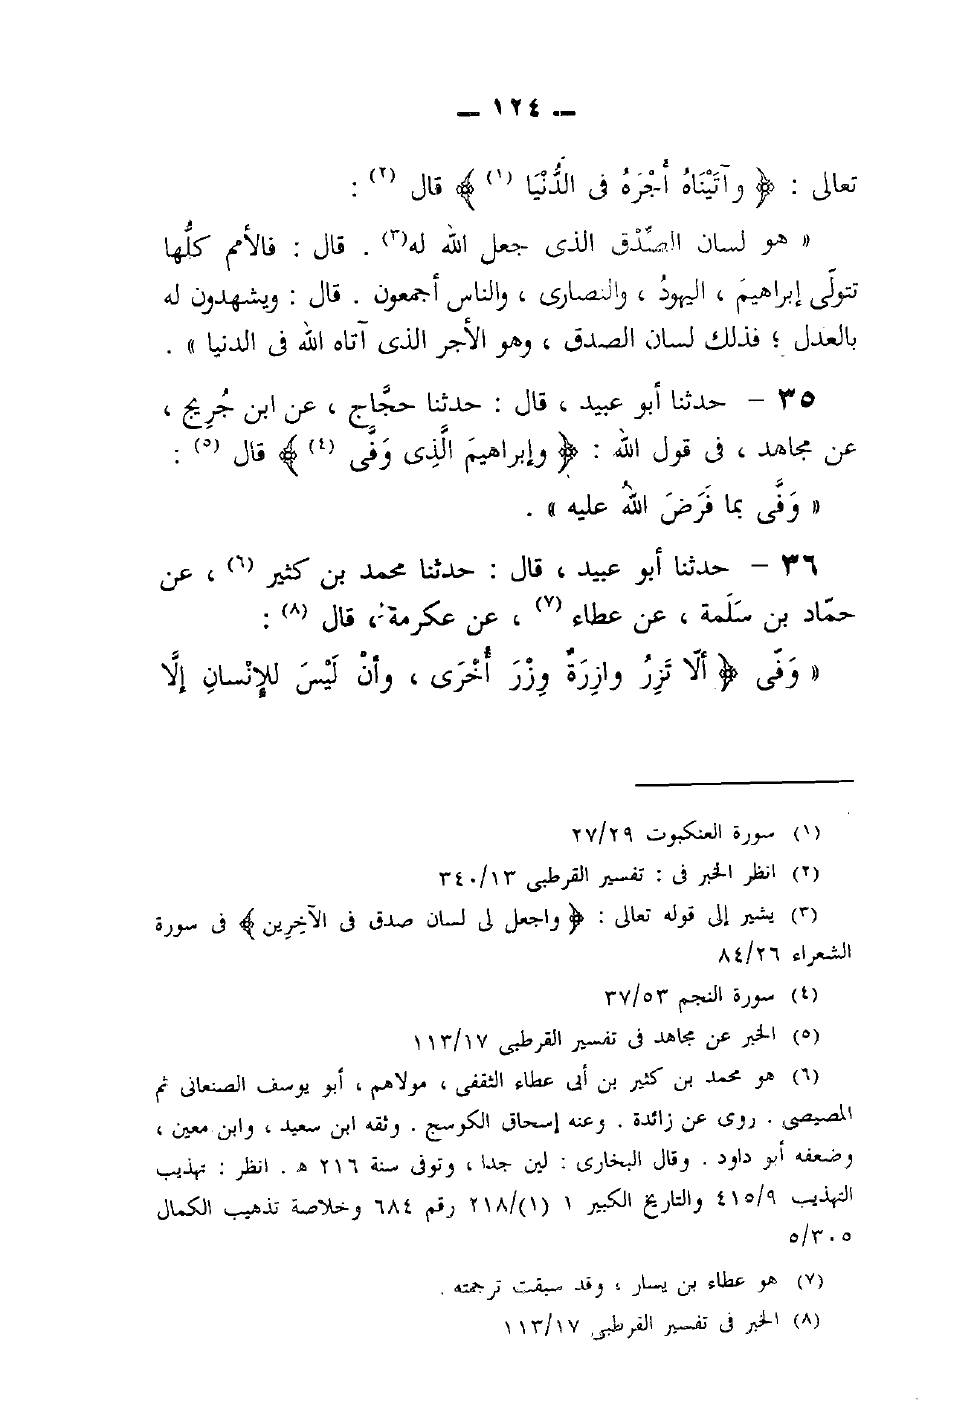 — ١٢٤ —
تعالى : ﴿ وآتَيْنَاهُ أَجْرَهُ فى الدُّنْيَا (١) ﴾ قال (٢) :
« هو لسان الصِّدْق الذى جعل الله له(٣) . قال : فالأمم كلُّها
تتولّى إبراهيمَ ، اليهودُ ، والنصارى ، والناس أجمعون . قال : ويشهدون له
بالعدل ؛ فذلك لسان الصدق ، وهو الأجر الذى آتاه الله فى الدنيا » .
٣٥ – حدثنا أبو عبيد ، قال : حدثنا حجَّاج ، عن ابن جُرِيج ،
عن مجاهد ، فى قول الله : ﴿ وإبراهيمَ الَّذِى وَفَّى (٤) ﴾ قال (٥) :
« وَفَّى بما فَرَضَ اللهُ عليه » .
٣٦ – حدثنا أبو عبيد ، قال : حدثنا محمد بن كثير (٦) ، عن
حمّاد بن سَلَمة ، عن عطاء (٧) ، عن عكرمة ، قال (٨) :
« وَفّى ﴿ ألّا تَزِرُ وازِرَةٌ وِزْرَ أُخْرَى ، وأنْ لَيْسَ للإنْسانِ إلَّا
(١) سورة العنكبوت ٢٧/٢٩
(٢) انظر الخبر فى : تفسير القرطبى ٣٤٠/١٣
(٣) يشير إلى قوله تعالى : ﴿ واجعل لى لسان صدق فى الآخِرِين ﴾ فى سورة
الشعراء ٨٤/٢٦
(٤) سورة النجم ٣٧/٥٣
(٥) الخبر عن مجاهد فى تفسير القرطبى ١١٣/١٧
(٦) هو محمد بن كثير بن أبى عطاء الثقفى ، مولاهم ، أبو يوسف الصنعانى ثم
المصيصى . روى عن زائدة . وعنه إسحاق الكوسج . وثقه ابن سعيد ، وابن معين ،
وضعفه أبو داود . وقال البخارى : لين جدا ، وتوفى سنة ٢١٦ هـ . انظر : تهذيب
التهذيب ٤١٥/٩ والتاريخ الكبير ١ (١)/٢١٨ رقم ٦٨٤ وخلاصة تذهيب الكمال
٥/٣٠٥
(٧) هو عطاء بن يسار ، وقد سبقت ترجمته .
(٨) الخبر فى تفسير القرطبى ١١٣/١٧